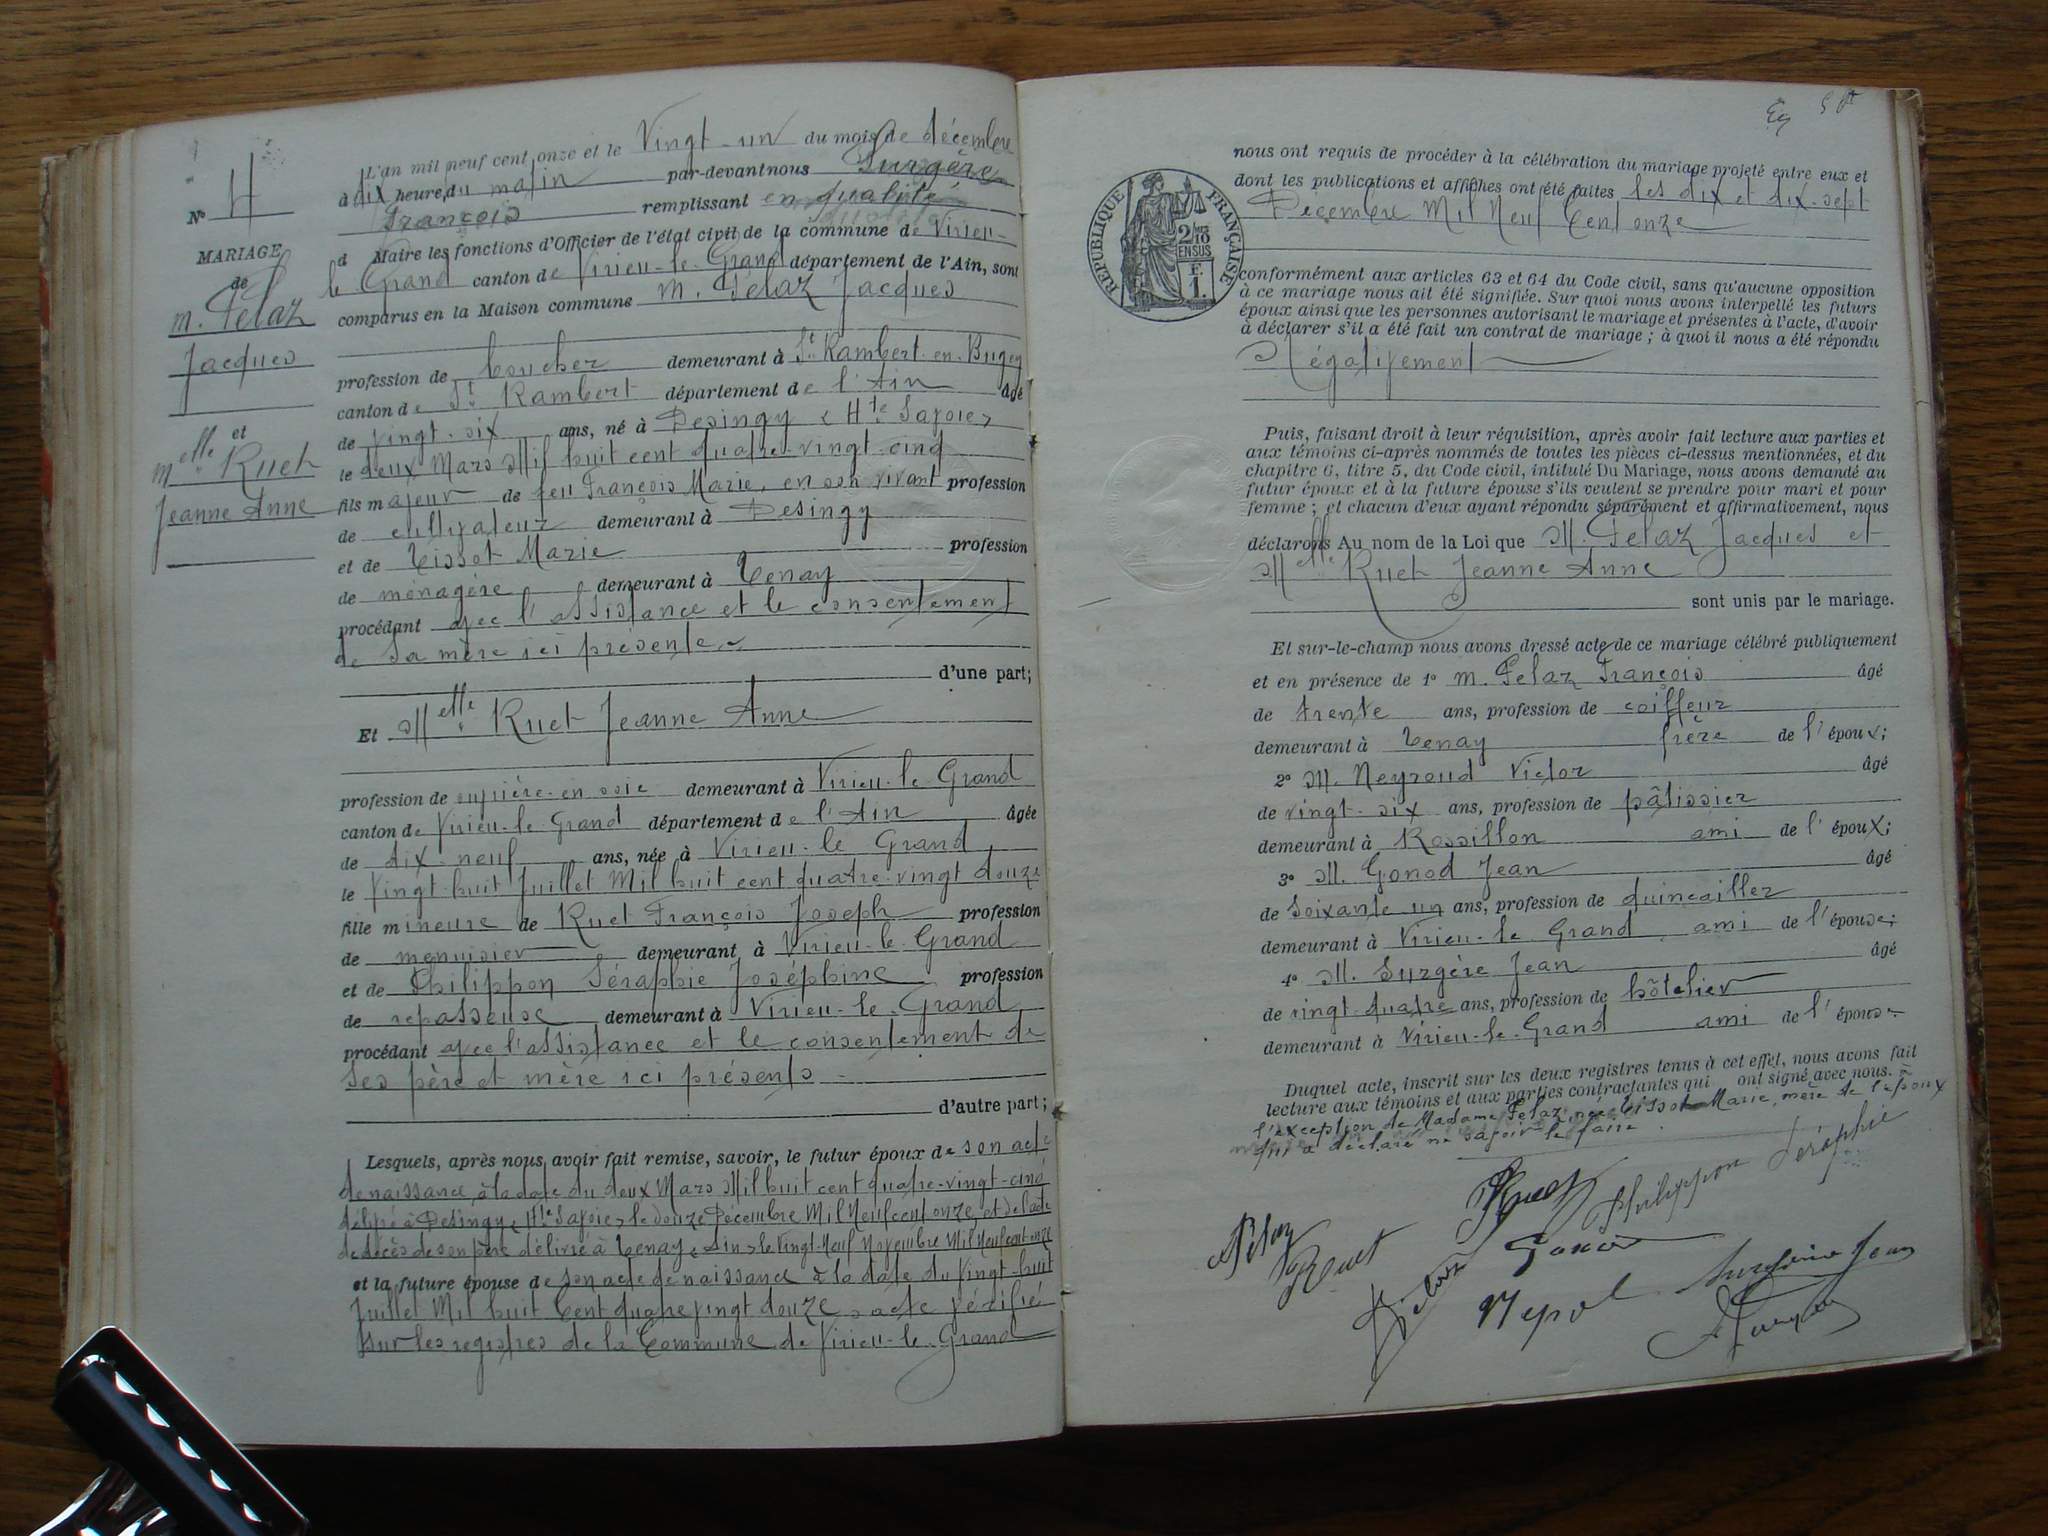 L'an mil neuf cent onze et le Vingt-un du mois de décembre
à dix heure du matin par-devant nous Surgère
François remplissant en qualité
d Maire les fonctions d'Officier de l'état civil de la commune de Virieu-
le Grand canton de Virieu-le-Grand département de l'Ain, sont
comparus en la Maison commune M. Pelaz Jacques
profession de boucher demeurant à St Rambert-en-Bugey
canton de St Rambert département de l'Ain âgé
de vingt-six ans, né à Desingy (Hte Savoie)
le deux Mars Mil huit cent quatre-vingt-cinq
fils majeur de feu François Marie, en son vivant profession
de cultivateur demeurant à Desingy
et de Tissot Marie profession
de ménagère demeurant à Tenay
procédant avec l'assistance et le consentement
de sa mère ici présente
d'une part;
Et Melle Ruet Jeanne Anne
profession de ouvrière-en-soie demeurant à Virieu-le-Grand
canton de Virieu-le-Grand département de l'Ain âgée
de dix-neuf ans, née à Virieu-le-Grand
le Vingt-huit Juillet Mil huit cent quatre-vingt douze
fille mineure de Ruet François Joseph profession
de menuisier demeurant à Virieu-le-Grand
et de Philippon Séraphie Joséphine profession
de repasseuse demeurant à Virieu-le-Grand
procédant avec l'assistance et le consentement de
ses père et mère ici présents
d'autre part;
Lesquels, après nous avoir fait remise, savoir, le futur époux de son acte
de naissance à la date du deux Mars Mil huit cent quatre-vingt-cinq
délivré à Desingy (Hte Savoie) le douze Décembre Mil Neuf cent onze, et de l'acte
de décès de son père délivré à Tenay (Ain) le Vingt-Neuf Novembre Mil Neuf cent onze
et la future épouse de son acte de naissance à la date du Vingt-huit
Juillet Mil huit Cent quatre vingt douze, acte vérifié
sur les registres de la Commune de Virieu-le-Grand
No 4
MARIAGE
de
M. Pelaz
Jacques
et
Melle Ruet
Jeanne Anne
nous ont requis de procéder à la célébration du mariage projeté entre eux et
dont les publications et affiches ont été faites les dix et dix-sept
Décembre Mil Neuf Cent onze
RÉPUBLIQUE FRANÇAISE
2/10
EN SUS
F.
1.
conformément aux articles 63 et 64 du Code civil, sans qu'aucune opposition
à ce mariage nous ait été signifiée. Sur quoi nous avons interpellé les futurs
époux ainsi que les personnes autorisant le mariage et présentes à l'acte, d'avoir
à déclarer s'il a été fait un contrat de mariage; à quoi il nous a été répondu
Négativement
Puis, faisant droit à leur réquisition, après avoir fait lecture aux parties et
aux témoins ci-après nommés de toutes les pièces ci-dessus mentionnées, et du
chapitre 6, titre 5, du Code civil, intitulé Du Mariage, nous avons demandé au
futur époux et à la future épouse s'ils veulent se prendre pour mari et pour
femme; et chacun d'eux ayant répondu séparément et affirmativement, nous
déclarons Au nom de la Loi que M. Pelaz Jacques et
Melle Ruet Jeanne Anne
sont unis par le mariage.
Et sur-le-champ nous avons dressé acte de ce mariage célébré publiquement
et en présence de 1o M. Pelaz François âgé
de trente ans, profession de coiffeur
demeurant à Tenay frère de l'époux;
2o M. Neyroud Victor âgé
de vingt-six ans, profession de pâtissier
demeurant à Rossillon ami de l'époux;
3o M. Gonod Jean âgé
de Soixante un ans, profession de quincailler
demeurant à Virieu-le-Grand ami de l'épouse;
4o M. Surgère Jean âgé
de vingt quatre ans, profession de hôtelier
demeurant à Virieu-le-Grand ami de l'épouse
Duquel acte, inscrit sur les deux registres tenus à cet effet, nous avons fait
lecture aux témoins et aux parties contractantes qui ont signé avec nous. à
l'exception de Madame Pelaz, née Tissot Marie, mère de l'époux
qui a déclaré ne savoir le faire.
Philippon Séraphie
Pelaz
Ruet
Ruet
Gonod
Pelaz